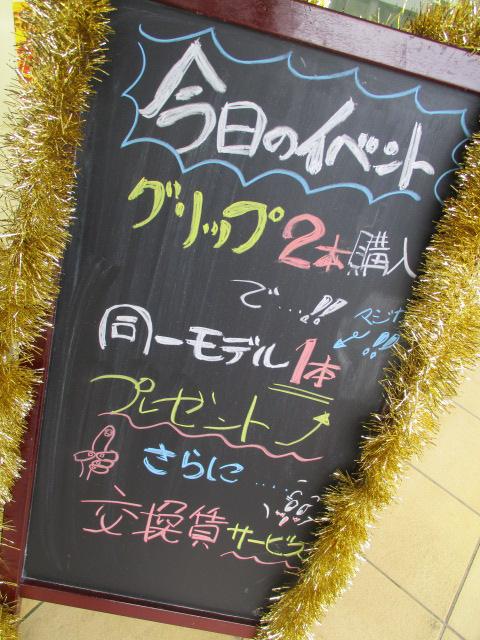 今日のイベント
グリップ2本購入
で…!!
マジで
!!
同一モデル1本
プレゼント
さらに……
交換賃サービス